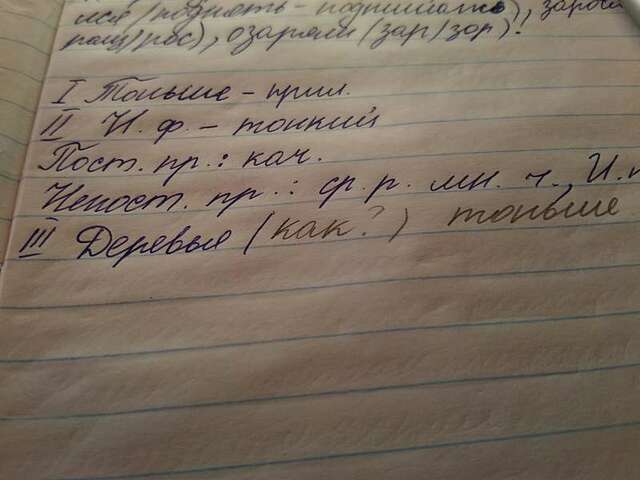 лся (поднять - поднимать), зарос
ращ/рос), озаряли (зар/зор).
I Тоньше - прил.
II Н. ф. - тонкий
Пост. пр.: кач.
Непост. пр.: ср. р. мн. ч., И. п
III Деревья (как?) тоньше.